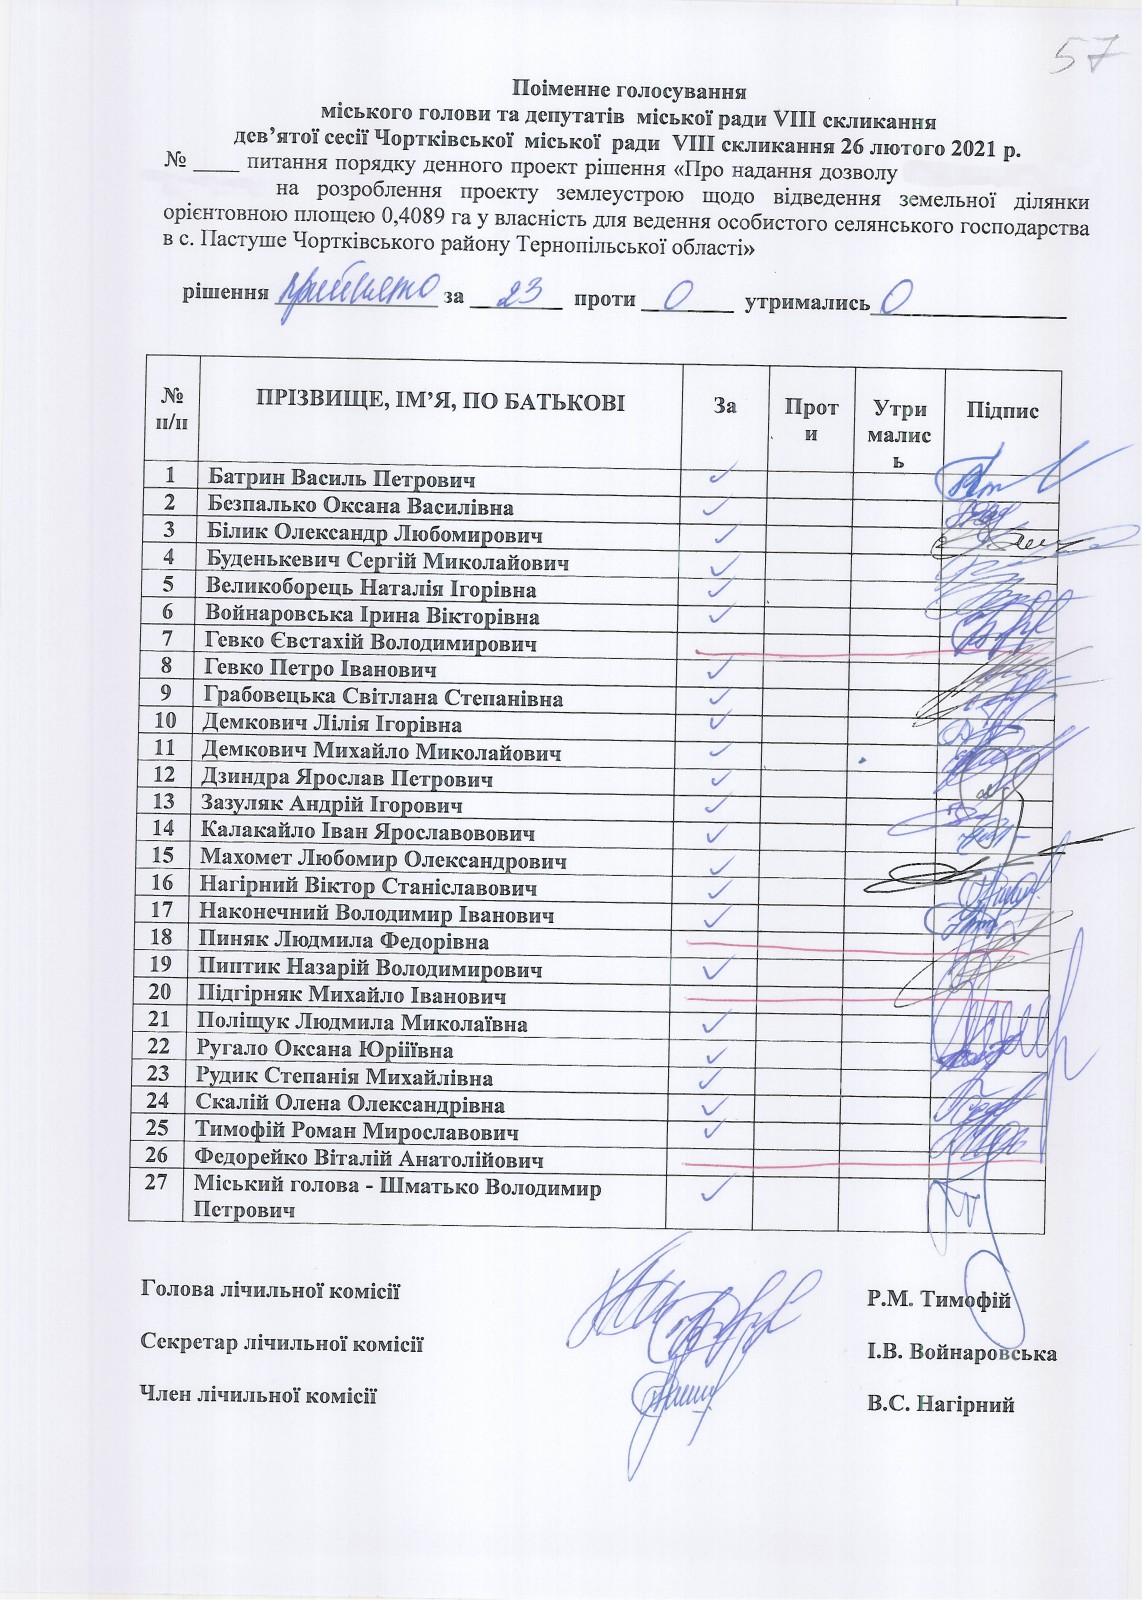 57
Поіменне голосування
міського голови та депутатів міської ради VIII скликання
дев’ятої сесії Чортківської міської ради VIII скликання 26 лютого 2021 р.
№ ____ питання порядку денного проект рішення «Про надання дозволу
на розроблення проекту землеустрою щодо відведення земельної ділянки
орієнтовною площею 0,4089 га у власність для ведення особистого селянського господарства
в с. Пастуше Чортківського району Тернопільської області»
рішення прийнято за 23 проти 0 утримались 0
№ п/п ПРІЗВИЩЕ, ІМ’Я, ПО БАТЬКОВІ За Проти Утримались Підпис
1 Батрин Василь Петрович ✓
2 Безпалько Оксана Василівна ✓
3 Білик Олександр Любомирович ✓
4 Буденькевич Сергій Миколайович ✓
5 Великоборець Наталія Ігорівна ✓
6 Войнаровська Ірина Вікторівна ✓
7 Гевко Євстахій Володимирович
8 Гевко Петро Іванович ✓
9 Грабовецька Світлана Степанівна ✓
10 Демкович Лілія Ігорівна ✓
11 Демкович Михайло Миколайович ✓
12 Дзиндра Ярослав Петрович ✓
13 Зазуляк Андрій Ігорович ✓
14 Калакайло Іван Ярославовович ✓
15 Махомет Любомир Олександрович ✓
16 Нагірний Віктор Станіславович ✓
17 Наконечний Володимир Іванович ✓
18 Пиняк Людмила Федорівна
19 Пиптик Назарій Володимирович ✓
20 Підгірняк Михайло Іванович
21 Поліщук Людмила Миколаївна ✓
22 Ругало Оксана Юріїївна ✓
23 Рудик Степанія Михайлівна ✓
24 Скалій Олена Олександрівна ✓
25 Тимофій Роман Мирославович ✓
26 Федорейко Віталій Анатолійович
27 Міський голова - Шматько Володимир ✓
Петрович
Голова лічильної комісії Р.М. Тимофій
Секретар лічильної комісії І.В. Войнаровська
Член лічильної комісії В.С. Нагірний